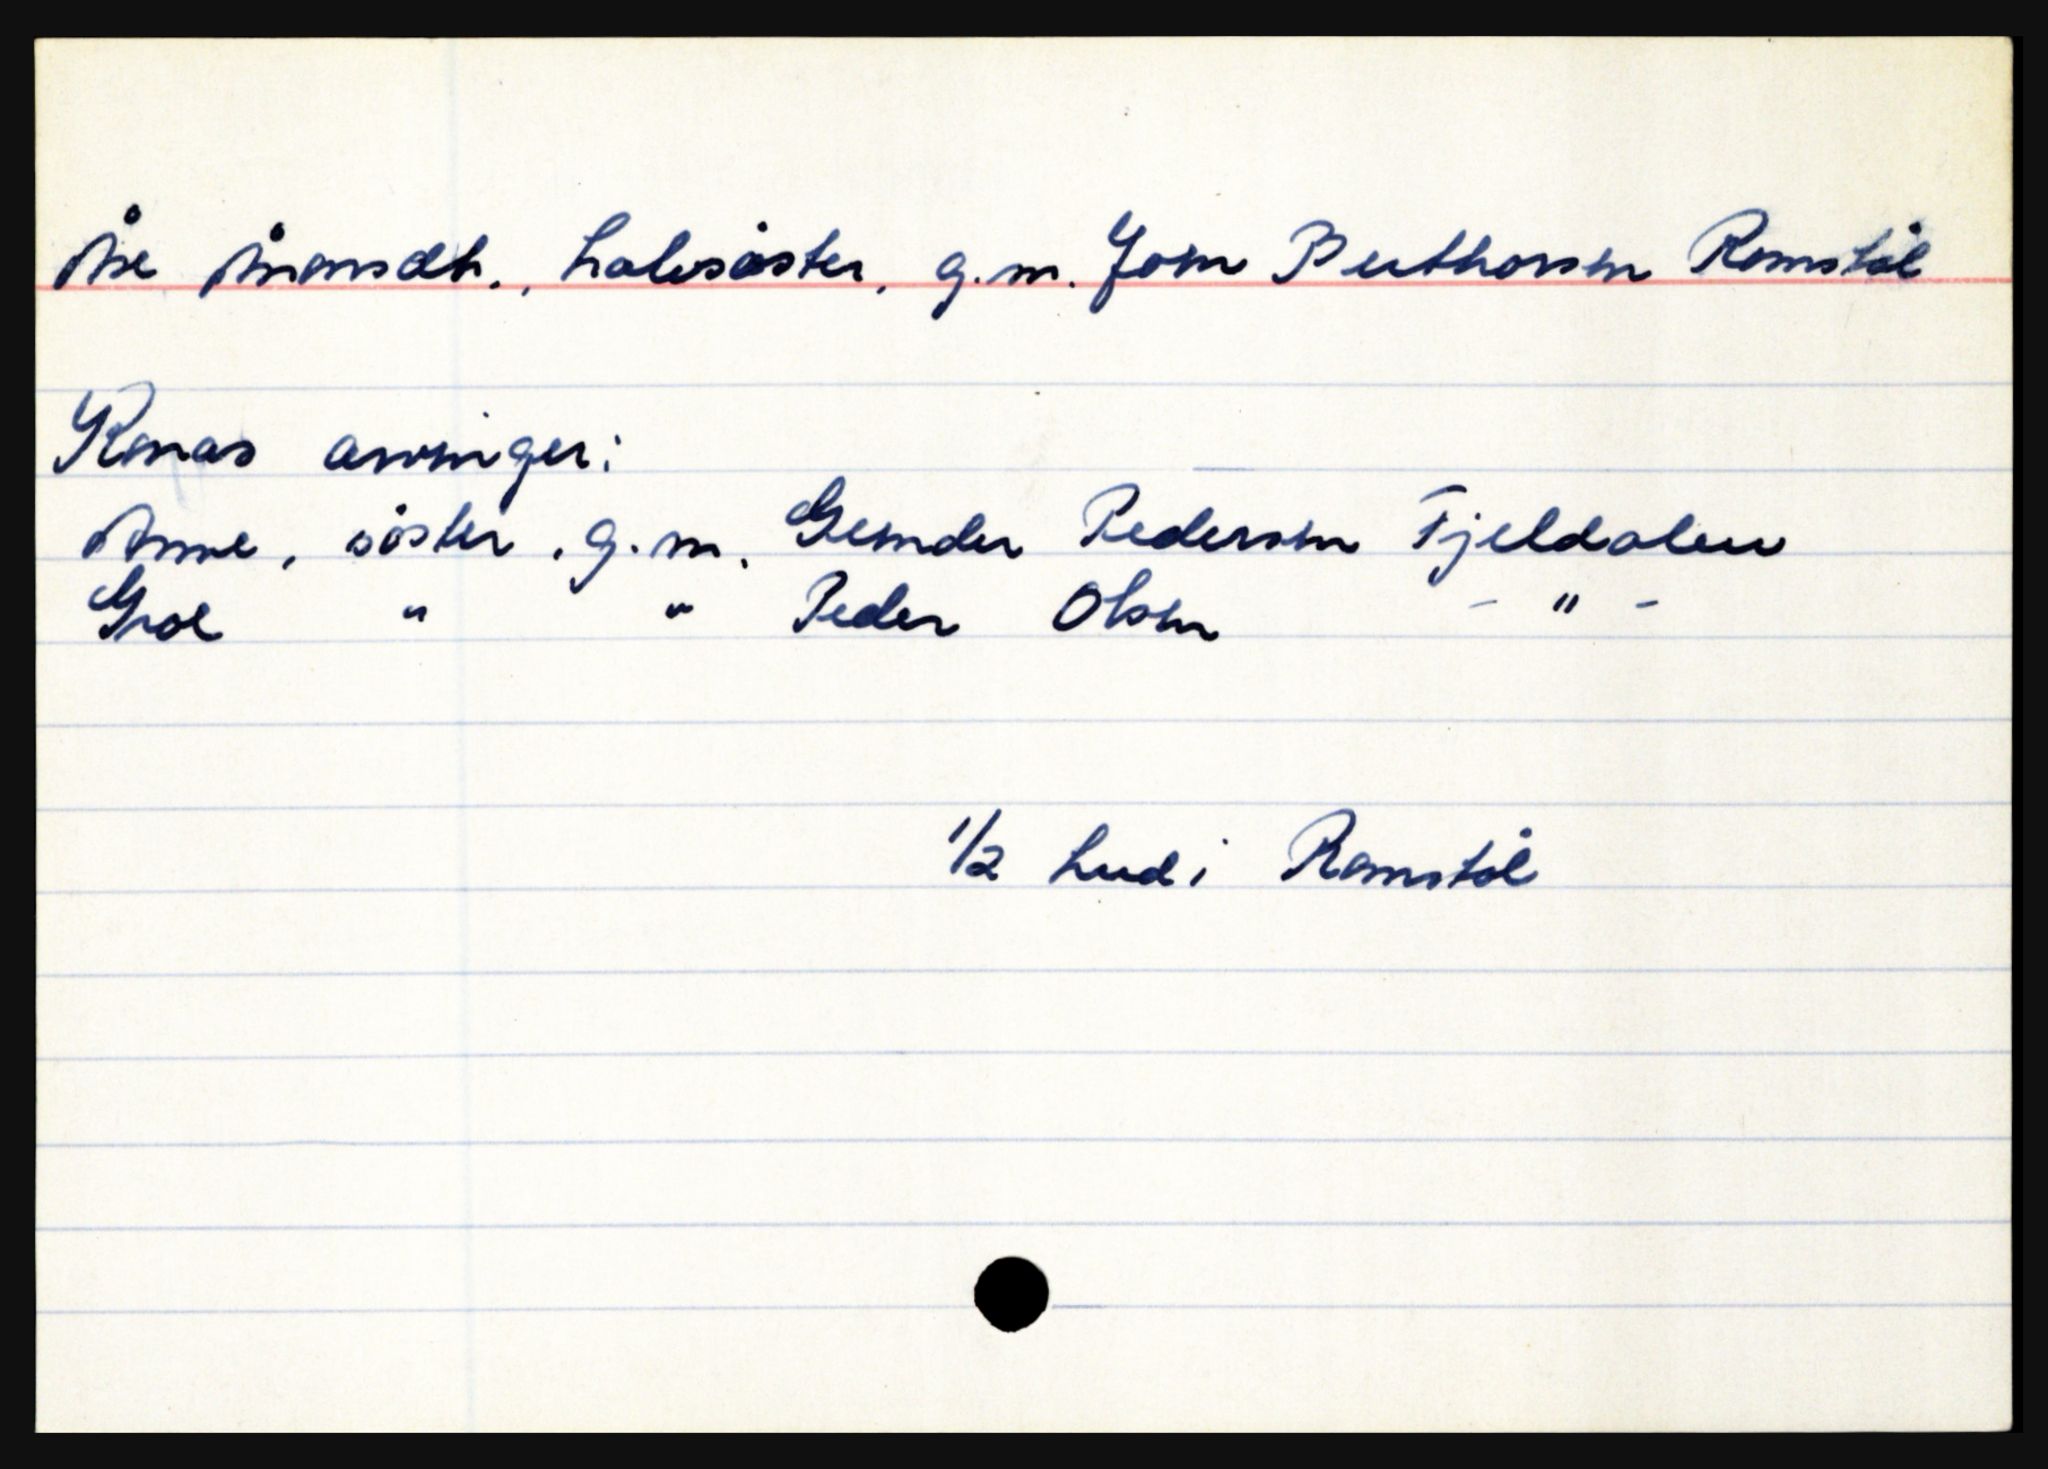 Åse Ånonsdtr., halvsøster, g.m. Jon Berthorsen Ramstøl
Konas arvinger:
Anne, søster, g.m. Gunder Pedersen Fjeldalen
Groe " " Peder Olsen - " -
1/2 hud i Ramstøl